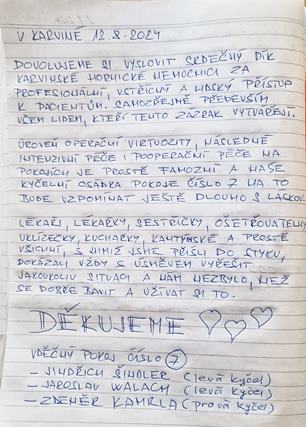 V KARVINÉ 12.8.2024
DOVOLUJEME SI VYSLOVIT SRDEČNÝ DÍK
KARVINSKÉ HORNICKÉ NEMOCNICI ZA
PROFESIONÁLNÍ, VSTŘÍCNÝ A LIDSKÝ PŘÍSTUP
K PACIENTŮM. SAMOZŘEJMĚ PŘEDEVŠÍM
VŠEM LIDEM, KTEŘÍ TENTO ZÁZRAK VYTVÁŘEJÍ.
ÚROVEŇ OPERAČNÍ VIRTUOZITY, NÁSLEDNÉ
INTENZIVNÍ PÉČE I POOPERAČNÍ PÉČE NA
POKOJÍCH JE PROSTĚ FAMOZNÍ A NAŠE
KYČELNÍ OSÁDKA POKOJE ČÍSLO 7 NA TO
BUDE VZPOMÍNAT JEŠTĚ DLOUHO S LÁSKOU.
LÉKAŘI, LÉKAŘKY, SESTŘIČKY, OŠETŘOVATELKY,
UKLÍZEČKY, KUCHAŘKY, KANTÝNSKÉ A PROSTĚ
VŠICHNI, S NIMIŽ JSME PŘIŠLI DO STYKU,
DOKÁZALI VŽDY S ÚSMĚVEM VYŘEŠIT
JAKOUKOLIV SITUACI A NÁM NEZBYLO, NEŽ
SE DOBŘE BAVIT A UŽÍVAT SI TO.
DĚKUJEME
VDĚČNÝ POKOJ ČÍSLO 7
- JINDŘICH ŠINDLER (levá kyčel)
- JAROSLAV WALACH (levá kyčel)
- ZDENĚK KAMRLA (pravá kyčel)